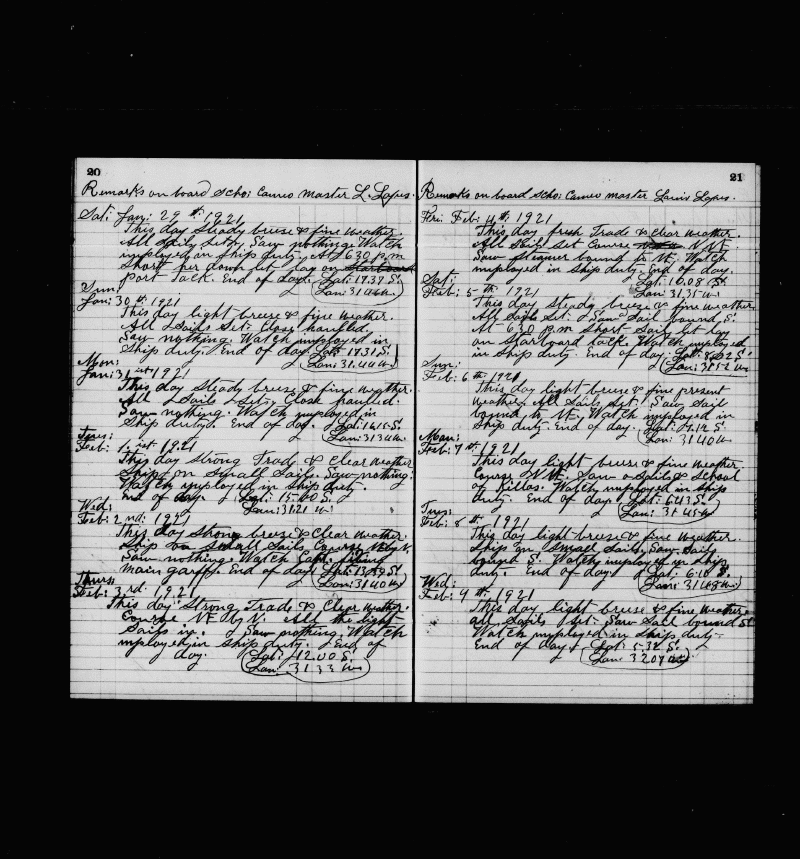 20
Remarks on board Scho: Cameo Master L. Lopes.
Sat: Jan: 29th 1921
This day Steady breese & fine weather.
All Sails Set. Saw nothing Watch
employed on Ship duty. At 630 p.m
Short per down let lay on
port Tack. End of day. Lat: 17.37 S.
Lon: 31.46 W.
Sun:
Jan: 30th 1921
This day light breese & fine weather.
All Sails Set. Close hauled.
Saw nothing. Watch employed in
Ship duty. End of day Lat: 17.31 S.
Lon: 31.44 W
Mon:
Jan: 31st 1921
This day Steady breese & fine weather.
All Sails Set. Close hauled.
Saw nothing. Watch employed in
Ship duty. End of day. Lat: 16.15 S.
Lon: 31.34 W.
Tues:
Feb: 1st 1921
This day Strong Trad & Clear weather
Ship on Small Sails. Saw nothing.
Watch employed in Ship duty
End of day. Lat: 15.00 S.
Lon: 31.21 W.
Wed:
Feb: 2nd: 1921
This day Strong breese & Clear weather.
Ship on Small Sails Course N by N.
Saw nothing. Watch
main gaff. End of day. Lat: 13.39 S.
Lon: 31.40 W.
Thurs:
Feb: 3rd 1921
This day Strong Trade & Clear weather.
Course N by N. All the light
Sails in. Saw nothing. Watch
mployed in Ship duty. End of
day. Lat: 12.00 S.
Lon: 31.33 W
21
Remarks on board Scho: Cameo master Louis Lopes.
Fri: Feb: 4th: 1921
This day fresh Trade & Clear weather.
All Sails Set Course
Saw Steamer bound to N. Watch
employed in Ship duty. End of day.
Lat: 10.08 S.
Lon: 31.35 W.
Sat:
Feb: 5th 1921
This day Steady breese & fine weather
All Sails Set. Saw Sail bound S.
At 630 p.m Short Sail let lay
on Starboard Tack. Watch employed
in Ship duty. End of day. Lat: 8.02 S.
Lon: 31.52 W.
Sun:
Feb: 6th 1921
This day light breese & fine present
weather. All Sails Set. Saw Sail
bound to N. Watch employed in
Ship duty. End of day. Lat: 7.12 S.
Lon: 31.40 W
Mon:
Feb: 7th 1921
This day light breese & fine weather.
Course N. Saw Sail & School
of Killas. Watch employed in Ship
duty. End of day. Lat: 6.43 S.
Lon: 31.45 W.
Tues:
Feb: 8th 1921
This day light breese & fine weather.
Ship on Small Sail. Saw Sail
bound S. Watch employed in Ship
duty. End of day. Lat: 6.10 S.
Lon: 31.48 W.
Wed:
Feb: 9th: 1921
This day light breese & fine weather.
All Sails Set. Saw Sail bound S.
Watch employed in Ship duty.
End of day. Lat: 5.32 S.
Lon: 32.07 W.